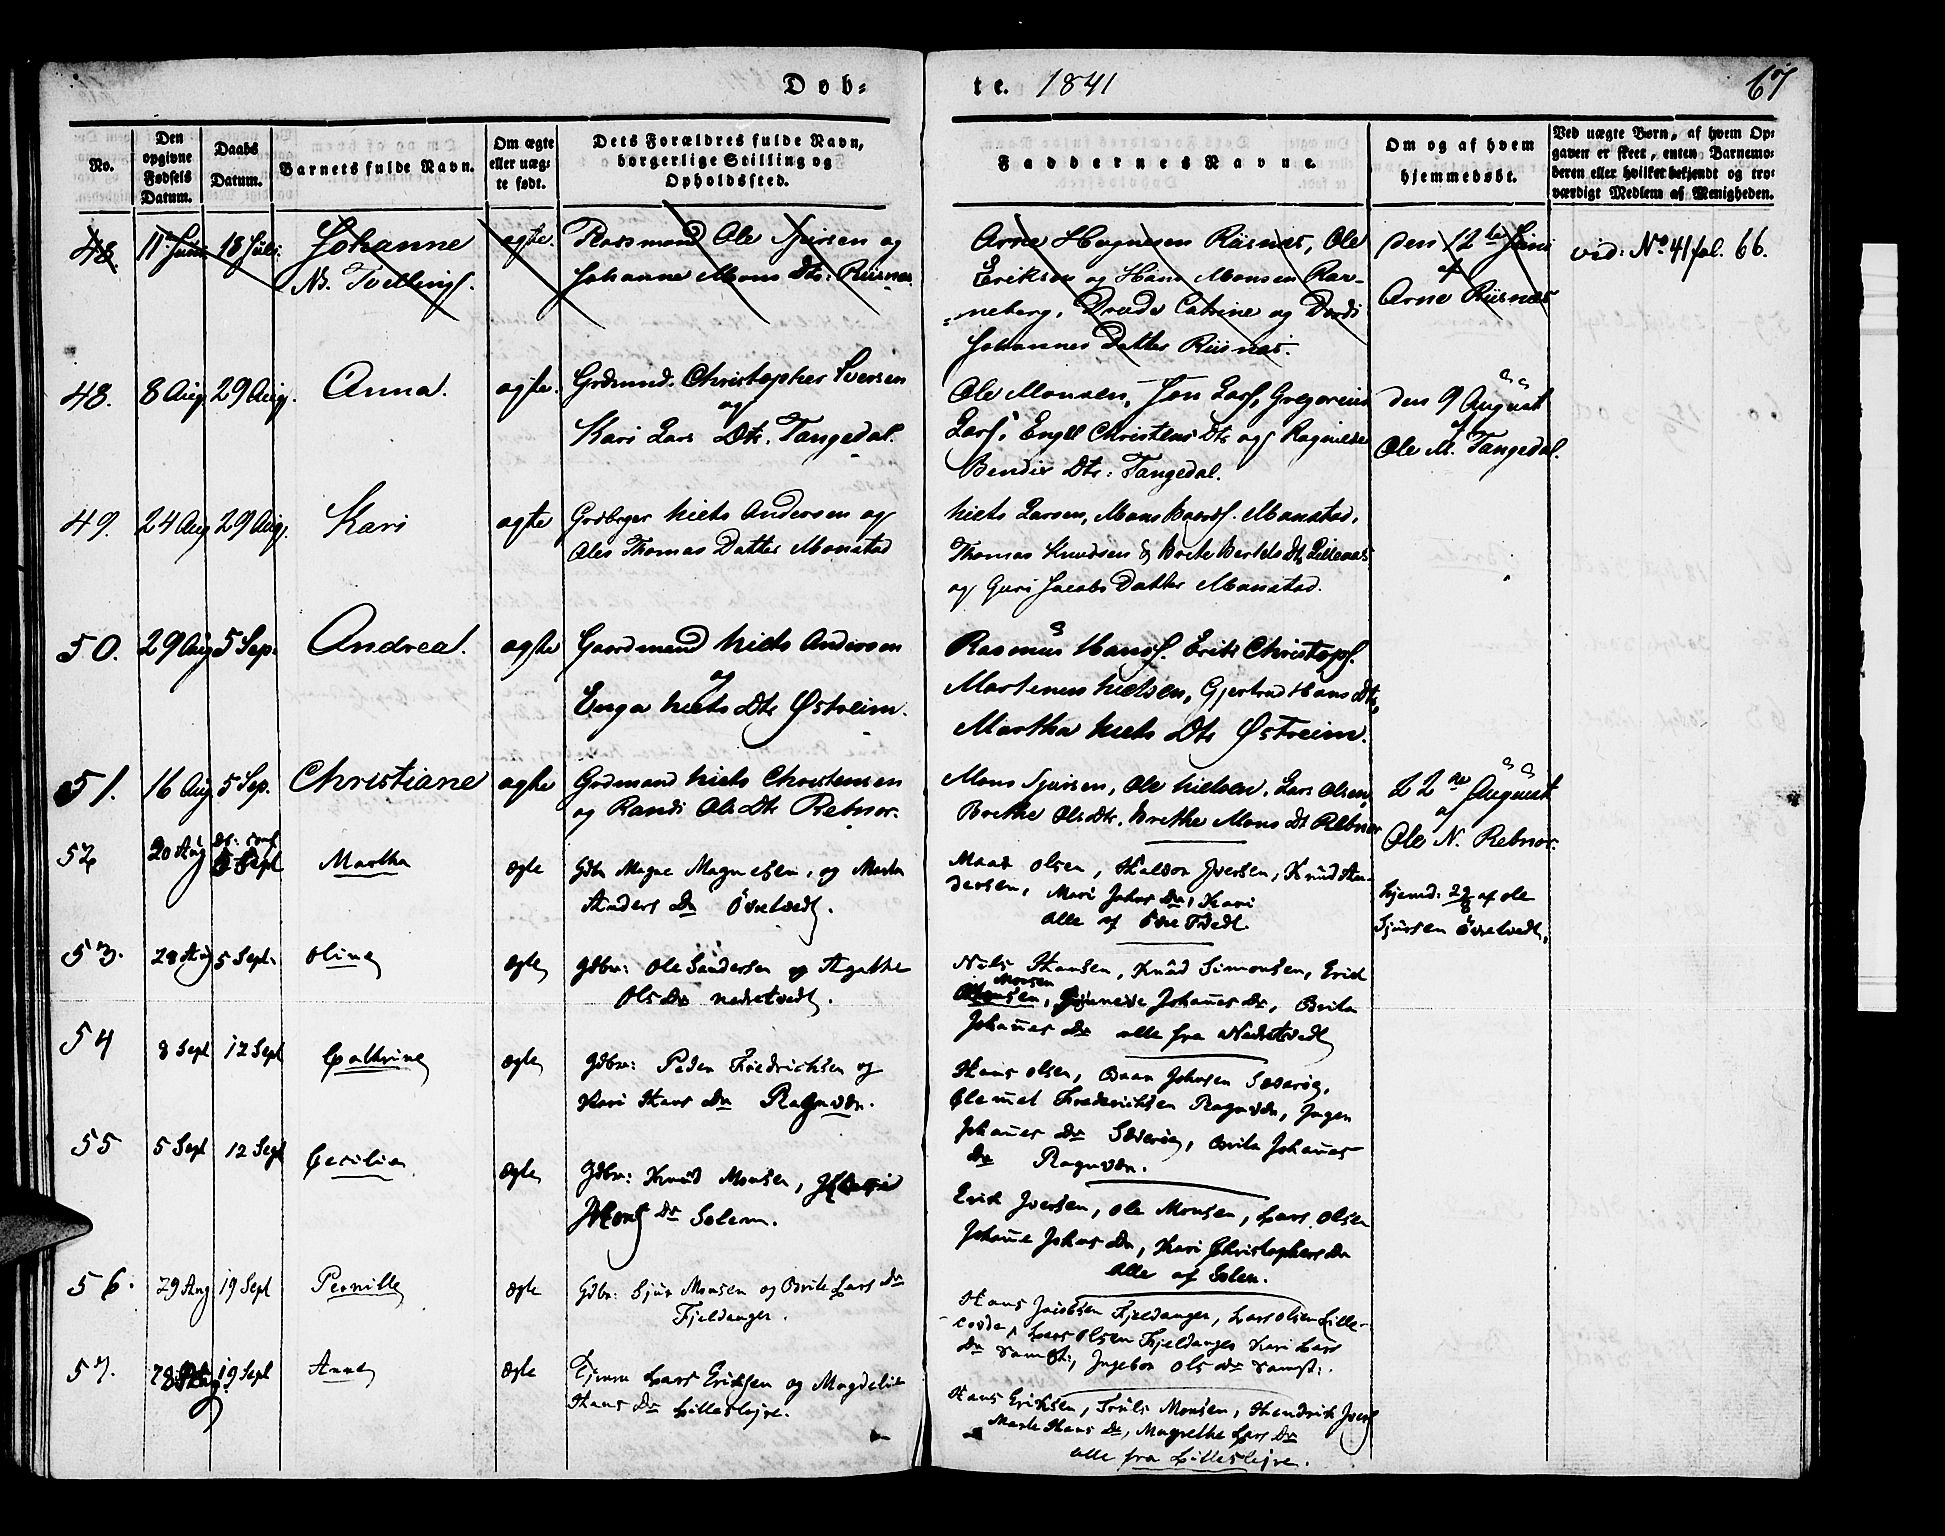 Døb-
te. 1841
67
No.
Den opgivne Fødsels Datum.
Daabs Datum.
Barnets fulde Navn.
Om ægte eller uægte født.
Dets Forældres fulde Navn, borgerlige Stilling og Opholdssted.
Faddernes Navne.
Om og af hvem hjemmedøbt.
Ved uægte Børn, af hvem Opgaven er skeet, enten Barnemoderen eller hvilket bekjendt og troværdigt Medlem af Menigheden.
48 11 Juni 18 Juli Johanne
Nb. Tvelling
ægte.
Plassmand Ole Sjursen og
Johanne Mons Dtr: Riisnes
Arne Magnesen Riisnes, Ole
Eriksen og Hans Monsen
Catrine og Dordi
Johannes Datter Riisnes.
den 12te Juni
af
Arne Riisnes
vid: No 41 fol. 66.
48. 8 Aug. 29 Aug. Anna. ægte.
Grdmand. Christopher Iversen
og
Kari Lars Dtr. Tangedal.
Ole Monsen, Jon Lars.,
Lars., Engel Christens Dtr og
Bendix Dtr: Tangedal.
den 9 August
af
Ole M. Tangedal.
49. 24 Aug 29 Aug. Kari ægte
Niels Andersen og
Ales Thomas Datter Monstad
Niels Larsen, Mons Monstad,
Thomas Knudsen & Brite Bertels Dtr Lillenæs
og Guri Jacobs Datter Monstad.
50. 29 Aug 5 Sep. Andrea. ægte
Gaardmand Niels Andersen
og
Enga Niels Dtr Østreim.
Rasmus Hans. Erik Christoph.
Martenus Nielsen, Gjertrud Hans Dtr,
Martha Niels Dtr Østreim.
51. 16 Aug 5 Sep. Christiane ægte
Grdmand Niels Christensen
og Randi Ols Dtr Rebnor.
Mons Sjursen, Ole Nielsen, Lars Olsen,
Brethe Ols dtr. Brethe Mons dt Rebnor
22de August
af
Ole N. Rebnor.
52 20 Aug 5 Sept Martha ægte
Gdbr Magne Magnesen, og Marta
Anders Dr Øvretvedt.
Mads Olsen, Haldor Iversen, Knud An-
dersen, Mari Johns Dr, Kari
alle af Øvre Tvedt.
hjemd: 22/8 af Ole
Sjursen Øvretvedt.
53. 28 Aug 5 Sept. Oline ægte
Gdbr: Ole Sandersen og Agathe
Ols Dr Nedretvedt.
Nils Hansen, Knud Simonsen, Erik
Monsen
Johannes Dr, Brita
Johannes Dr alle fra Nedretvedt
54 8 Sept 12 Sept Cathrine ægte
Gdbr: Peder Friedrichsen og
Kari Hans Dr Ragnvær.
Hans Olsen, Johnsen Sæverøy,
Clemet Frederichsen Ragnvær, Ingen
Johannes Dr Sæverøy, Brita Johannes
Dr Ragnvær.
55 5 Sept 12 Sept Cecilia ægte
Gdbr: Knud Monsen,
Dr Solem.
Erik Iversen, Ole Monsen, Lars Olsen
Johanne Johns Dr, Kari Christophers Dr
alle af Solen.
56. 29 Aug 19 Sept Pernille ægte
Gdbr: Sjur Monsen og Brite Lars Dr
Fjeldanger.
Hans Jacobsen Fjeldanger, Lars Olsen Lille-
Lars Olsen Fjeldanger Kari Lars
Dr samst., Ingebor Ols Dr samst:.
57. 28 Aug 19 Sept Anne ægte
Lars Eriksen og Magdeli
Hans Dr Lilleslejre.
Hans Eriksen, Truls Monsen, Hendrik Ivers
Marte Hans Dr, Magrethe Lars Dr
alle fra Lilleslejre.